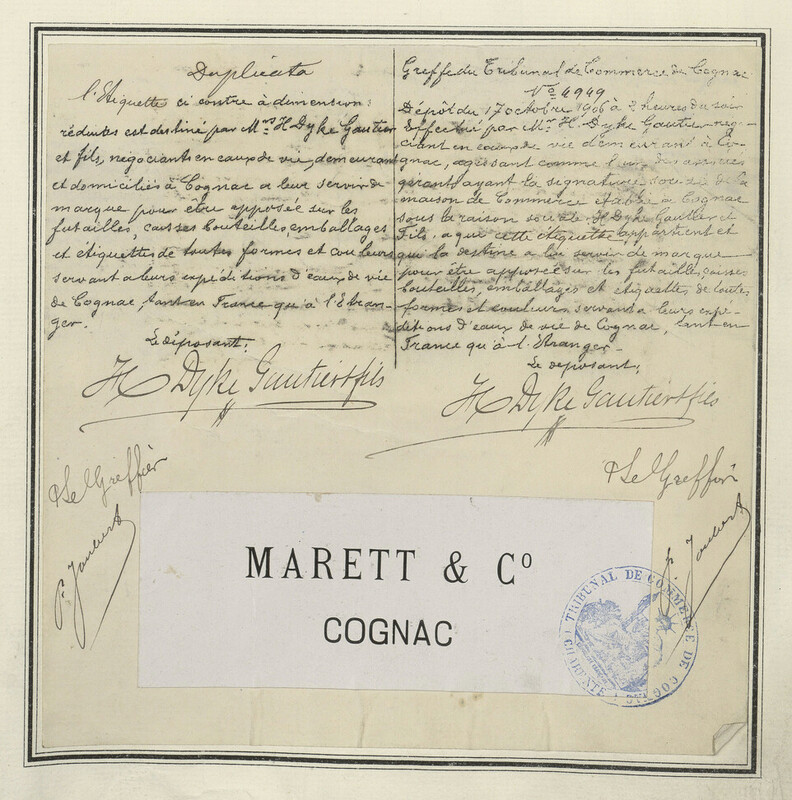 Duplicata
l'Etiquette ci contre à dimension:
réduites est destiné par Mrs H Dyke Gautier
et fils, négociants en eaux de vie, demeurant
et domiciliés à Cognac a leur servir de
marque pour être apposée sur les
futailles, caisses bouteilles emballages
et étiquettes de toutes formes et couleurs
servant a leurs expéditions d'eaux de vie
de Cognac, tant en France qu'à l'Etran-
ger.
Le déposant:
H Dyke Gautier & fils
Greffe du Tribunal de Commerce de Cognac
No 4949
Dépôt du 17 octobre 1906 à 2 heures du soir
Effectué par Mr. H. Dyke Gautier nego-
ciant en eaux de vie demeurant à Co-
gnac, agissant comme l'un des associés
gérants ayant la signature sociale de la
maison de Commerce établie à Cognac
sous la raison sociale H Dyke Gautier et
Fils, a que cette étiquette appartient et
qui la destine a lui servir de marque
pour être apposée sur les futailles, caisses
bouteilles emballages et etiquettes de toutes
formes et couleurs servant a leurs expe-
ditions d'eaux de vie de Cognac, tant en
France qu'à l'Etranger-
Le deposant:
H Dyke Gautier & fils
Le Greffier
P. Joubert
Le Greffier
P. Joubert
MARETT & Co
COGNAC
TRIBUNAL DE COMMERCE DE COGNAC
(CHARENTE)